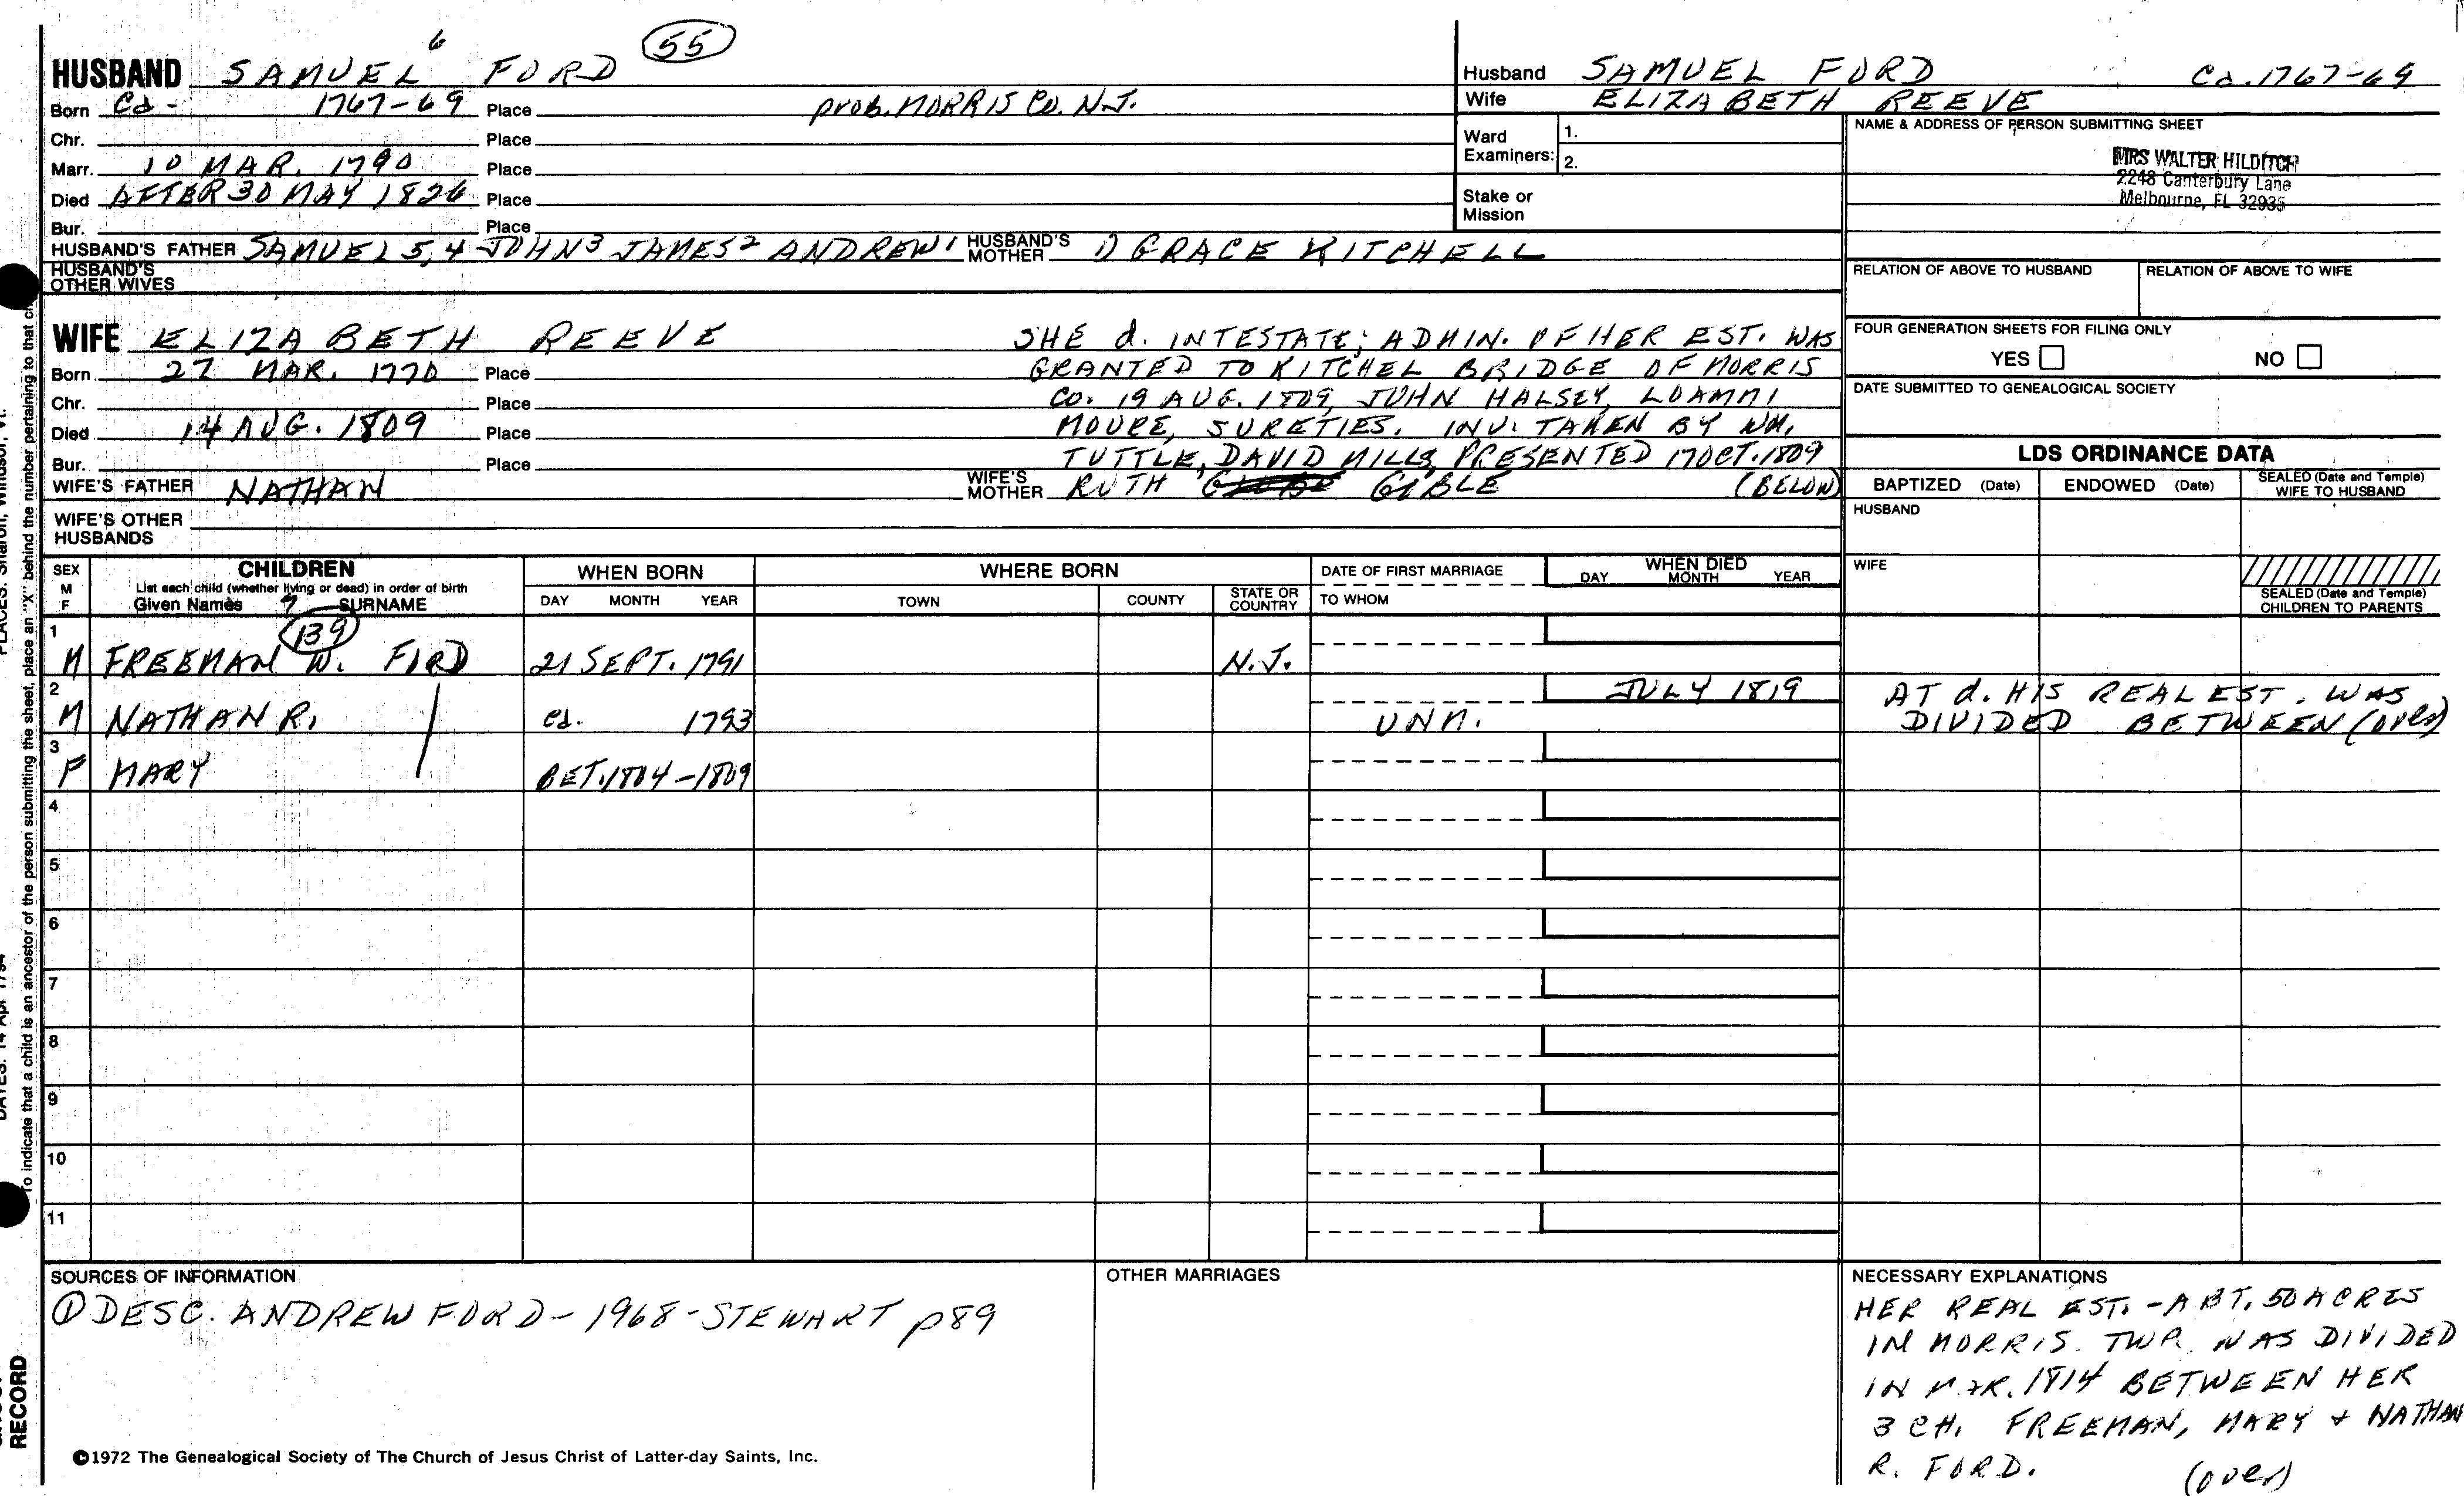 HUSBAND SAMUEL 6 FORD 55
Born Ca- 1767-69 Place prob. MORRIS CO. N.J.
Chr. Place
Marr. 10 MAR. 1790 Place
Died AFTER 30 MAY 1826 Place
Bur. Place
HUSBAND'S FATHER SAMUEL 5,4 JOHN3 JAMES2 ANDREW1 HUSBAND'S MOTHER 1) GRACE KITCHELL
HUSBAND'S OTHER WIVES
Husband SAMUEL FORD Ca. 1767-69
Wife ELIZABETH REEVE
Ward Examiners: 1.
2.
Stake or Mission
NAME & ADDRESS OF PERSON SUBMITTING SHEET
MRS WALTER HILDITCH
2248 Canterbury Lane
Melbourne, FL 32935
RELATION OF ABOVE TO HUSBAND RELATION OF ABOVE TO WIFE
WIFE ELIZABETH REEVE
Born 27 MAR. 1770 Place
Chr. Place
Died 14 AUG. 1809 Place
Bur. Place
SHE d. INTESTATE; ADMIN. OF HER EST. WAS
GRANTED TO KITCHEL BRIDGE OF MORRIS
CO. 19 AUG. 1809, JOHN HALSEY, LOAMMI
MOORE, SURETIES. INV. TAKEN BY WM.
TUTTLE, DAVID MILLS, PRESENTED 17 OCT. 1809
WIFE'S FATHER NATHAN WIFE'S MOTHER RUTH GIBLE (BELOW)
WIFE'S OTHER HUSBANDS
FOUR GENERATION SHEETS FOR FILING ONLY
YES NO
DATE SUBMITTED TO GENEALOGICAL SOCIETY
LDS ORDINANCE DATA
BAPTIZED (Date) ENDOWED (Date) SEALED (Date and Temple) WIFE TO HUSBAND
HUSBAND
WIFE
SEALED (Date and Temple) CHILDREN TO PARENTS
SEX M F CHILDREN WHEN BORN WHERE BORN DATE OF FIRST MARRIAGE WHEN DIED
List each child (whether living or dead) in order of birth
Given Names 7 SURNAME DAY MONTH YEAR TOWN COUNTY STATE OR COUNTRY TO WHOM DAY MONTH YEAR
139
1 M FREEMAN W. FORD 21 SEPT. 1791 N.J.
2 M NATHAN R. ca. 1793 UNM. JULY 1819 AT d. HIS REAL EST. WAS
DIVIDED BETWEEN (over)
3 F MARY BET. 1804-1809
4
5
6
7
8
9
10
11
SOURCES OF INFORMATION
① DESC. ANDREW FORD - 1968 - STEWART p89
OTHER MARRIAGES
NECESSARY EXPLANATIONS
HER REAL EST. - ABT. 50 ACRES
IN MORRIS. TWP. WAS DIVIDED
IN MAR. 1814 BETWEEN HER
3 CH. FREEMAN, MARY + NATHAN
R. FORD. (over)
©1972 The Genealogical Society of The Church of Jesus Christ of Latter-day Saints, Inc.
To indicate that a child is an ancestor of the person submitting the sheet, place an "X" behind the number pertaining to that
PLACES: Sharon, Windsor, Vt.
DATES: 14 Apr 1794
RECORD